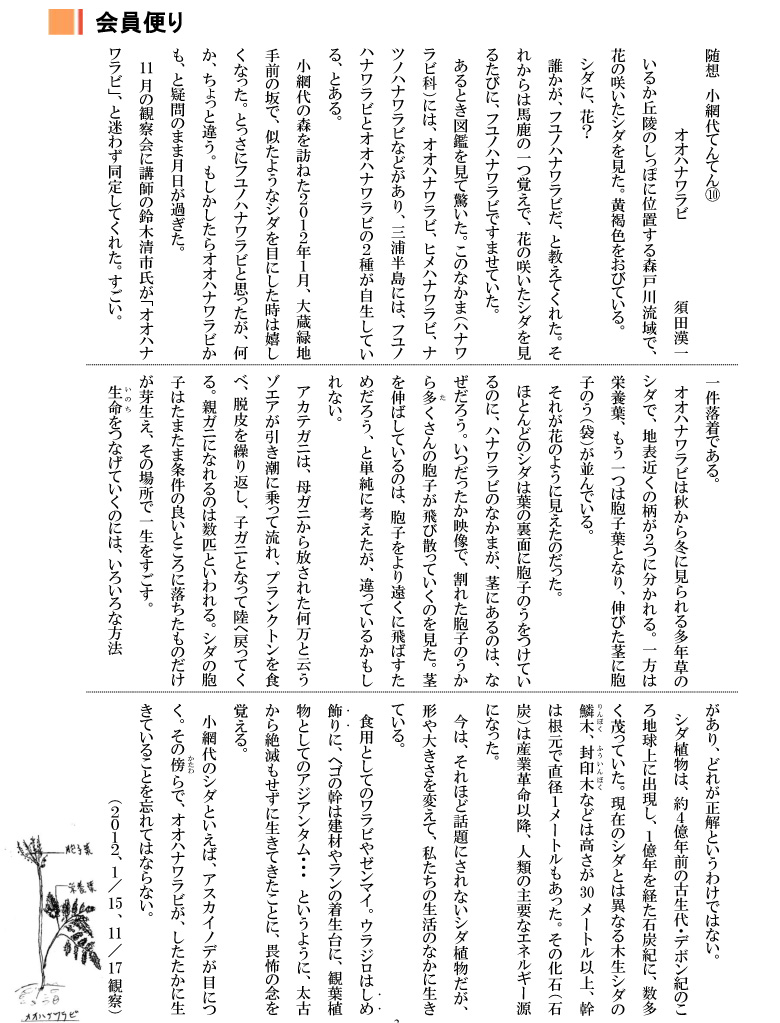 会員便り
随想　小網代てんてん⑩
オオハナワラビ
須田漢一
いるか丘陵のしっぽに位置する森戸川流域で、
花の咲いたシダを見た。黄褐色をおびている。
シダに、花？
誰かが、フユノハナワラビだ、と教えてくれた。そ
れからは馬鹿の一つ覚えで、花の咲いたシダを見
るたびに、フユノハナワラビですませていた。
あるとき図鑑を見て驚いた。このなかま（ハナワ
ラビ科）には、オオハナワラビ、ヒメハナワラビ、ナ
ツノハナワラビなどがあり、三浦半島には、フユノ
ハナワラビとオオハナワラビの２種が自生してい
る、とある。
小網代の森を訪ねた２０１２年１月、大蔵緑地
手前の坂で、似たようなシダを目にした時は嬉し
くなった。とっさにフユノハナワラビと思ったが、何
か、ちょっと違う。もしかしたらオオハナワラビか
も、と疑問のまま月日が過ぎた。
１１月の観察会に講師の鈴木清市氏が「オオハナ
ワラビ」、と迷わず同定してくれた。すごい。
一件落着である。
オオハナワラビは秋から冬に見られる多年草の
シダで、地表近くの柄が２つに分かれる。一方は
栄養葉、もう一つは胞子葉となり、伸びた茎に胞
子のう（袋）が並んでいる。
それが花のように見えたのだった。
ほとんどのシダは葉の裏面に胞子のうをつけてい
るのに、ハナワラビのなかまが、茎にあるのは、な
ぜだろう。いつだったか映像で、割れた胞子のうか
ら多くさんの胞子が飛び散っていくのを見た。茎
た
を伸ばしているのは、胞子をより遠くに飛ばすた
めだろう、と単純に考えたが、違っているかもし
れない。
アカテガニは、母ガニから放された何万と云う
ゾエアが引き潮に乗って流れ、プランクトンを食
べ、脱皮を繰り返し、子ガニとなって陸へ戻ってく
る。親ガニになれるのは数匹といわれる。シダの胞
子はたまたま条件の良いところに落ちたものだけ
が芽生え、その場所で一生をすごす。
生命をつなげていくのには、いろいろな方法
いのち
があり、どれが正解というわけではない。
シダ植物は、約４億年前の古生代・デボン紀のこ
ろ地球上に出現し、１億年を経た石炭紀に、数多
く茂っていた。現在のシダとは異なる木生シダの
鱗木、封印木などは高さが３０メートル以上、幹
りんぼく　ふういんぼく
は根元で直径１メートルもあった。その化石（石
炭）は産業革命以降、人類の主要なエネルギー源
になった。
今は、それほど話題にされないシダ植物だが、
形や大きさを変えて、私たちの生活のなかに生き
ている。
食用としてのワラビやゼンマイ。ウラジロはしめ
飾りに、ヘゴの幹は建材やランの着生台に、観葉植
物としてのアジアンタム・・・　というように、太古
から絶滅もせずに生きてきたことに、畏怖の念を
覚える。
小網代のシダといえば、アスカイノデが目につ
く。その傍らで、オオハナワラビが、したたかに生
かたわ
きていることを忘れてはならない。
（２０１２、１／１５、１１／１７観察）
胞子葉
栄養葉
オオハナワラビ